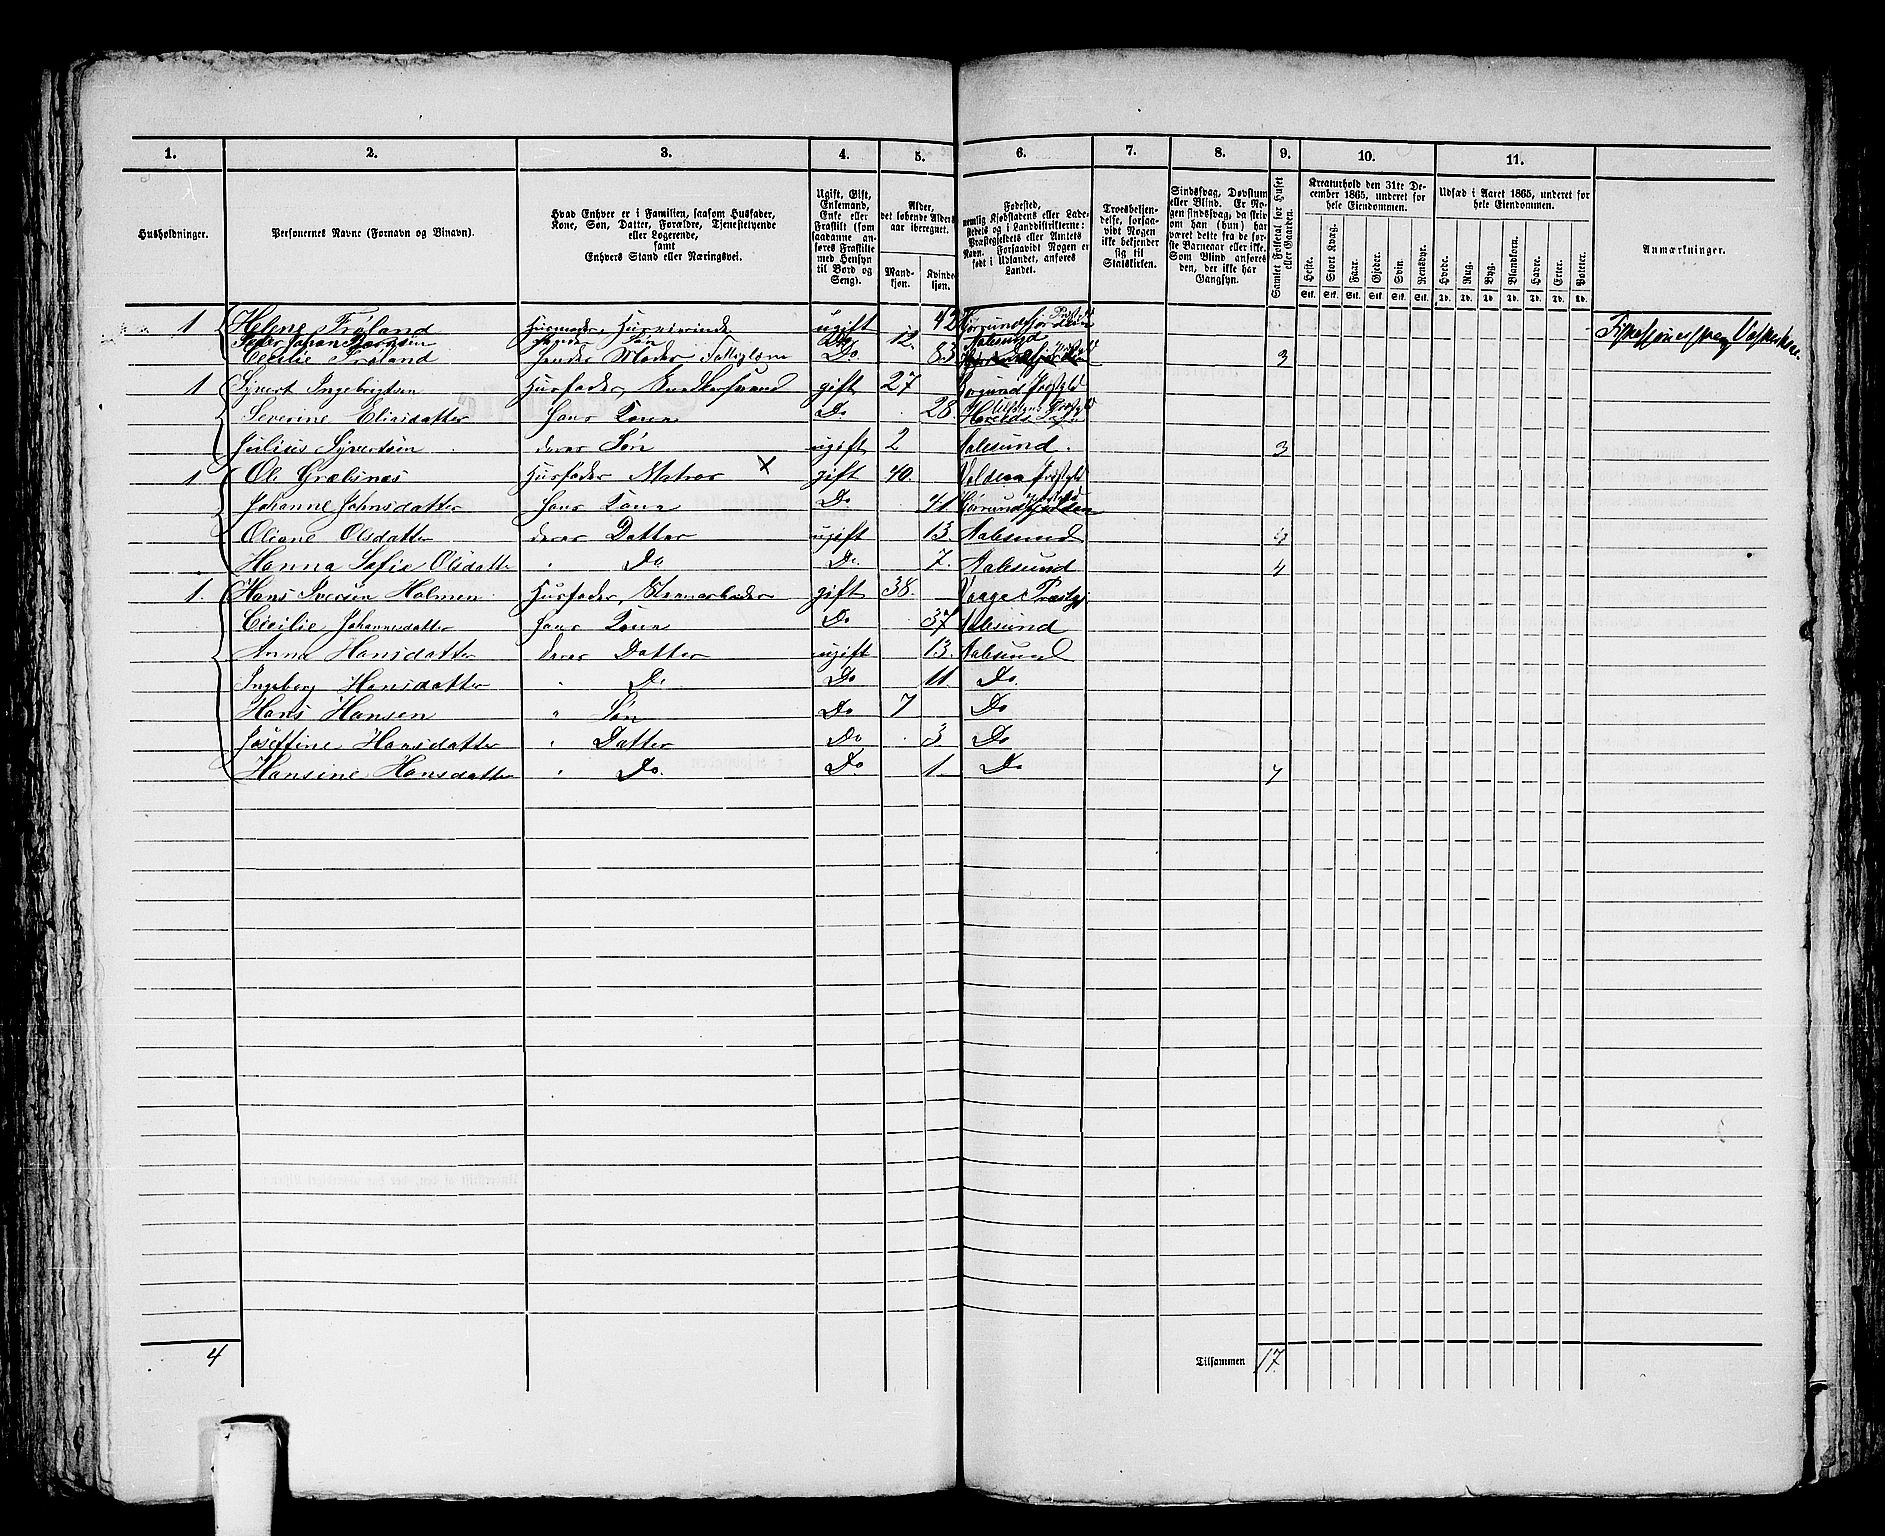 1. 2. 3. 4. 5. 6. 7. 8. 9. 10. 11.
Husholdninger.
Personernes Navne (Fornavn og Binavn).
Hvad Enhver er i Familien, saasom Husfader,
Kone, Søn, Datter, Forældre, Tjenestetyende
eller Logerende,
samt
Enhvers Stand eller Næringsvei.
Ugift, Gift,
Enkemand,
Enke eller
Fraskilt (som
saadanne an-
føres Fraskilte
med Hensyn
til Bord og
Seng).
Alder,
det løbende Alders-
aar iberegnet.
Mand-
kjøn.
Kvinde-
kjøn.
Fødested,
nemlig Kjøbstadens eller Lade-
stedets og i Landdistrikterne:
Præstegjeldets eller Amtets
Navn. Forsaavidt Nogen er
født i Udlandet, anføres
Landet.
Troesbekjen-
delse, forsaa-
vidt Nogen
ikke bekjender
sig til
Statskirken.
Sindssvag, Døvstum
eller Blind. Er No-
gen sindssvag, da skriv
om han (hun) har
været dette fra de før-
ste Barneaar eller ikke.
Som Blind anføres
den, der ikke har
Gangsyn.
Samlet Folketal for Huset
eller Gaarden.
Kreaturhold den 31te De-
cember 1865, underet for
hele Eiendommen.
Heste. Stort Kvæg. Faar. Gjeder. Svin. Rensdyr.
Stk. Stk. Stk. Stk. Stk. Stk.
Udsæd i Aaret 1865, underet for
hele Eiendommen.
Hvede. Rug. Byg. Blandkorn. Havre. Erter. Poteter.
Td. Td. Td. Td. Td. Td. Td.
Anmærkninger.
1 Helene Frøland Husmoder, ugift 42
Peder Johan Søn Do 12. Aalesund
Cecilie Frøland hendes Moder Do. 83 3
1 Syvert Ingebrigtsen Husfader, gift 27 Borgund Præstgjld
Severine Eliasdatter hans Kone Do 28.
Julius Syvertsen deres Søn ugift 2 Aalesund. 3
1 Ole Husfader Matros X gift 40. Volden Præstgjld
Johanne Johnsdatter hans Kone Do 41
Oliane Olsdatter deres Datter ugift 13 Aalesund
Hanna Sofie Olsdatter " Do Do. 7. Aalesund 4
1. Hans Iversen Holmen Husfader, gift 38. Vaage Præstgj
Cicilie Johannesdatter hans Kone Do 37 Aalesund
Anne Hansdatter deres Datter ugift 13. Aalesund
Ingeborg Hansdatter " Do Do 11 Do.
Hans Hansen " Søn Do 7 Do
Joseffine Hansdatter " Datter Do 3 Do
Hansine Hansdatter " Do. Do 1. Do 7
4 Tilsammen 17.